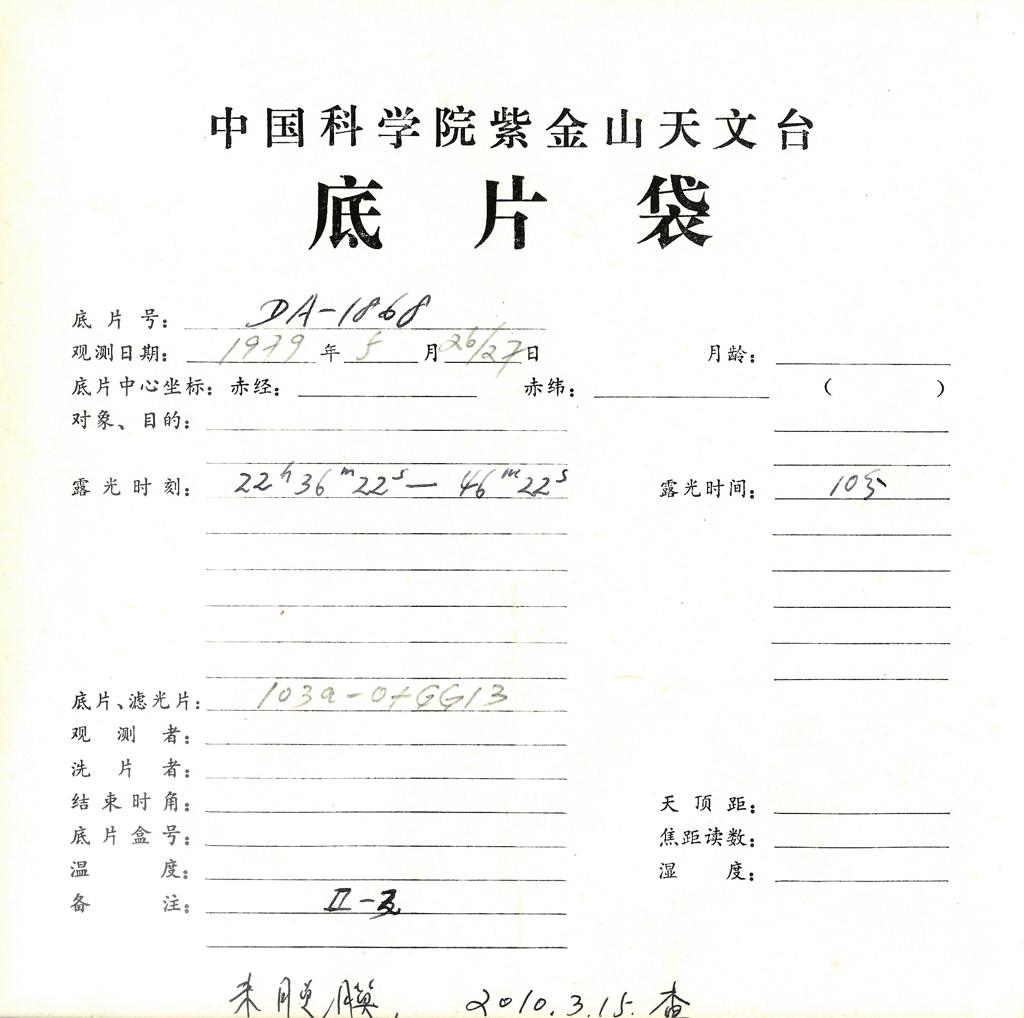 中国科学院紫金山天文台
底片袋
底片号： DA-1868
观测日期： 1979 年 5 月 26/27 日 月龄：
底片中心坐标：赤经： 赤纬： （ ）
对象、目的：
露光时刻： 22h36m22s — 46m22s 露光时间： 10分
底片、滤光片： 103a-O+GG13
观测者：
洗片者：
结束时角： 天顶距：
底片盒号： 焦距读数：
温度： 湿度：
备注： II-
未脱膜， 2010.3.15. 查